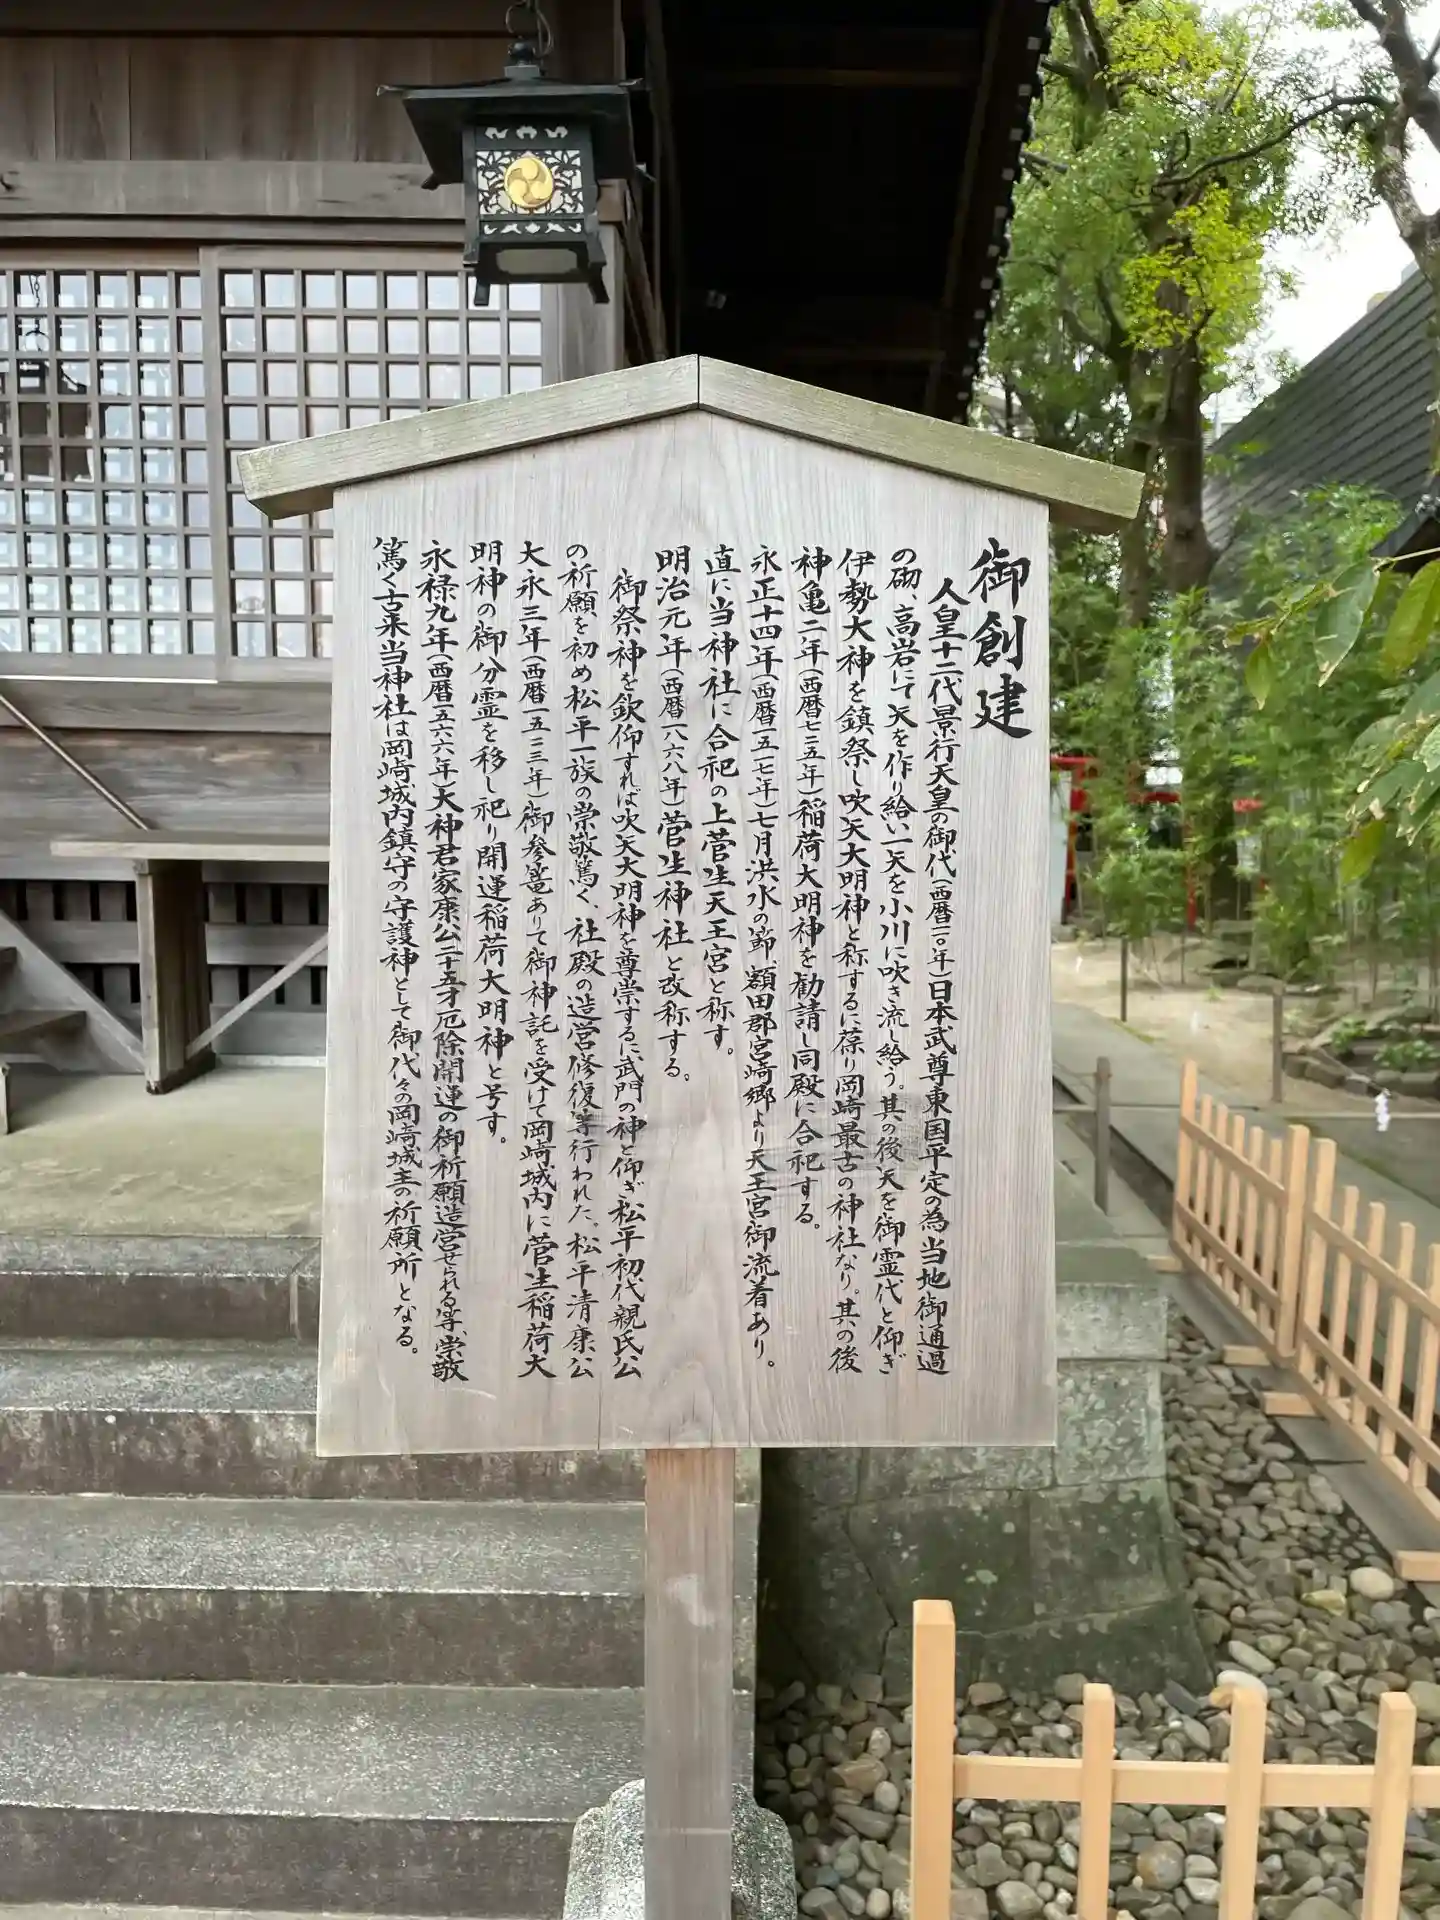 御創建
人皇十二代景行天皇の御代(西暦一一〇年)日本武尊東国平定の為当地御通過
の砌、高岩にて矢を作り給い一矢を小川に吹き流し給う。其の後矢を御霊代と仰ぎ
伊勢大神を鎮祭し吹矢大明神と称するに葆り岡崎最古の神社なり。其の後
神亀二年(西暦七二五年)稲荷大明神を勧請し同殿に合祀する。
永正十四年(西暦一五一七年)七月洪水の節、額田郡宮崎郷より天王宮御流着あり。
直に当神社に合祀の上菅生天王宮と称す。
明治元年(西暦一八六八年)菅生神社と改称する。
御祭神を欽仰すれば吹矢大明神を尊崇するに武門の神と仰ぎ松平初代親氏公
の祈願を初め松平一族の崇敬篤く、社殿の造営修復等行われた。松平清康公
大永三年(西暦一五二三年)御参篭ありて御神託を受けて岡崎城内に菅生稲荷大
明神の御分霊を移し祀り開運稲荷大明神と号す。
永禄九年(西暦一五六六年)大神君家康公二十五才厄除開運の御祈願造営せられる等、崇敬
篤く古来当神社は岡崎城内鎮守の守護神として御代々の岡崎城主の祈願所となる。